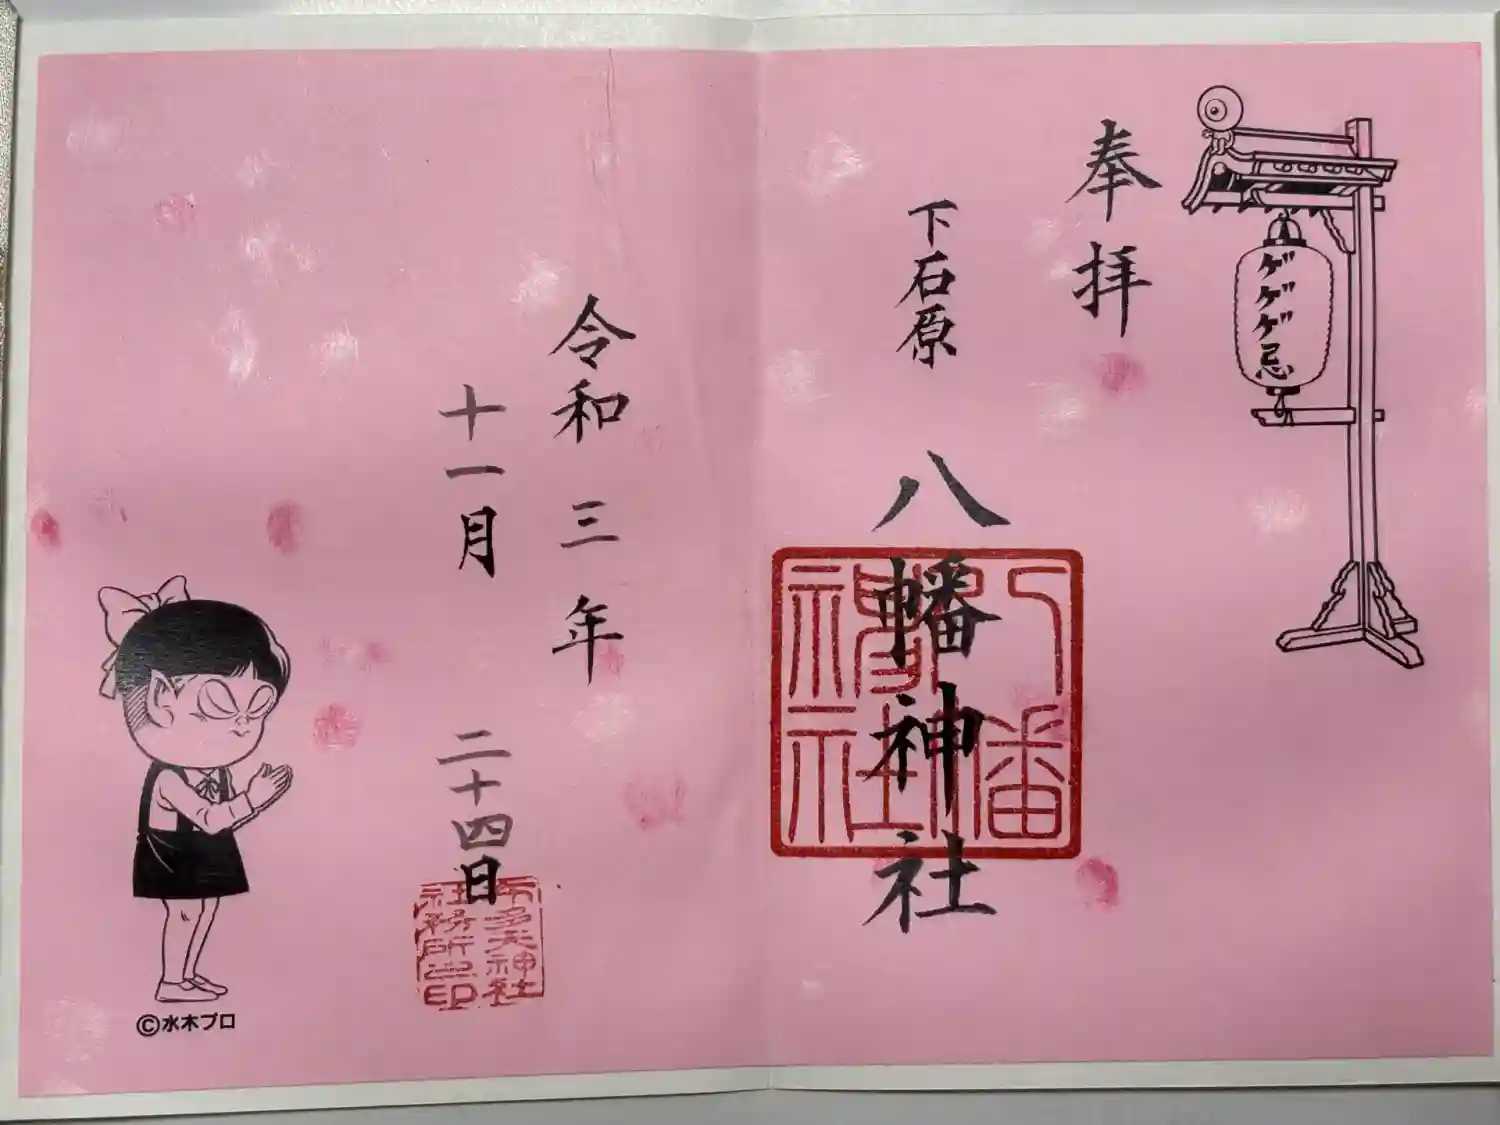 ゲゲゲ忌
奉拝
下石原
八幡神社
八幡神社
令和三年
十一月二十四日
布多天神社
社務所之印
©水木プロ